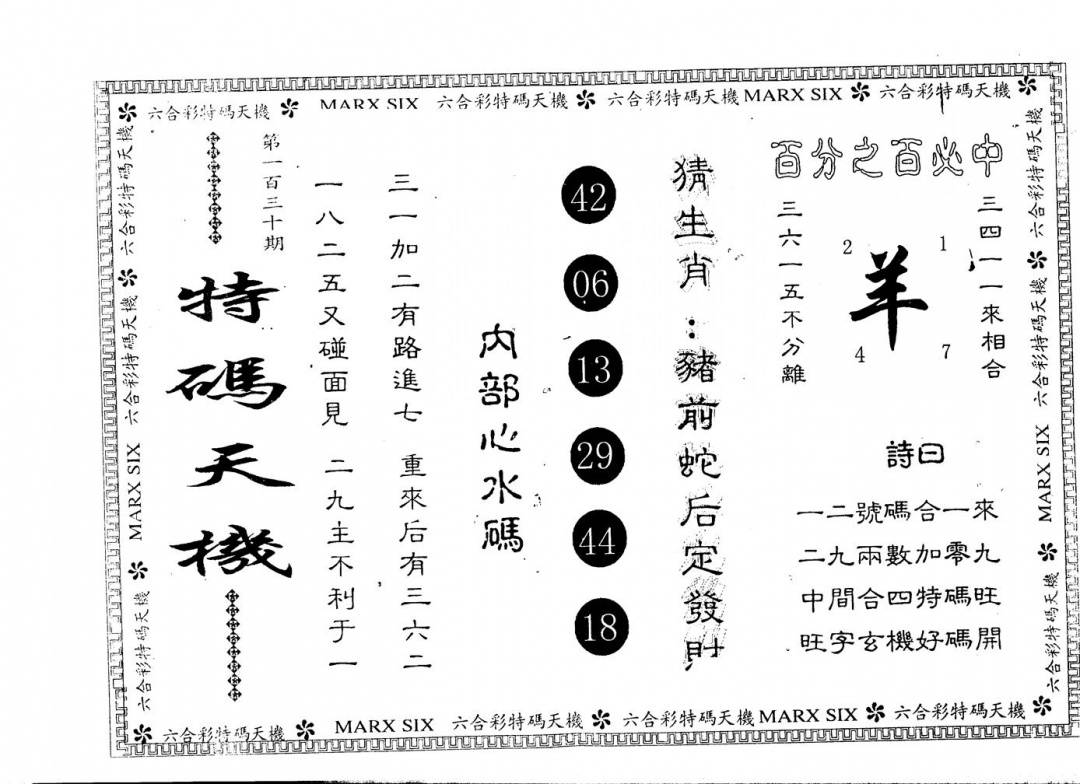 六合彩特碼天機 MARX SIX 六合彩特碼天機 六合彩特碼天機 MARX SIX 六合彩特碼天機
百分之百必中
三四一一來相合
2 1
羊
4 7
三六一五不分離
詩曰
一二號碼合一來
二九兩數加零九
中間合四特碼旺
旺字玄機好碼開
猜生肖：豬前蛇后定發財
42
06
13
29
44
18
內部心水碼
三一加二有路進七 重來后有三六二
一八二五又碰面見 二九主不利于一
第一百三十期
特碼天機
六合彩特碼天機 六合彩特碼天機 MARX SIX 六合彩特碼天機
六合彩特碼天機 六合彩特碼天機 MARX SIX 六合彩特碼天機
六合彩特碼天機 MARX SIX 六合彩特碼天機 六合彩特碼天機 MARX SIX 六合彩特碼天機